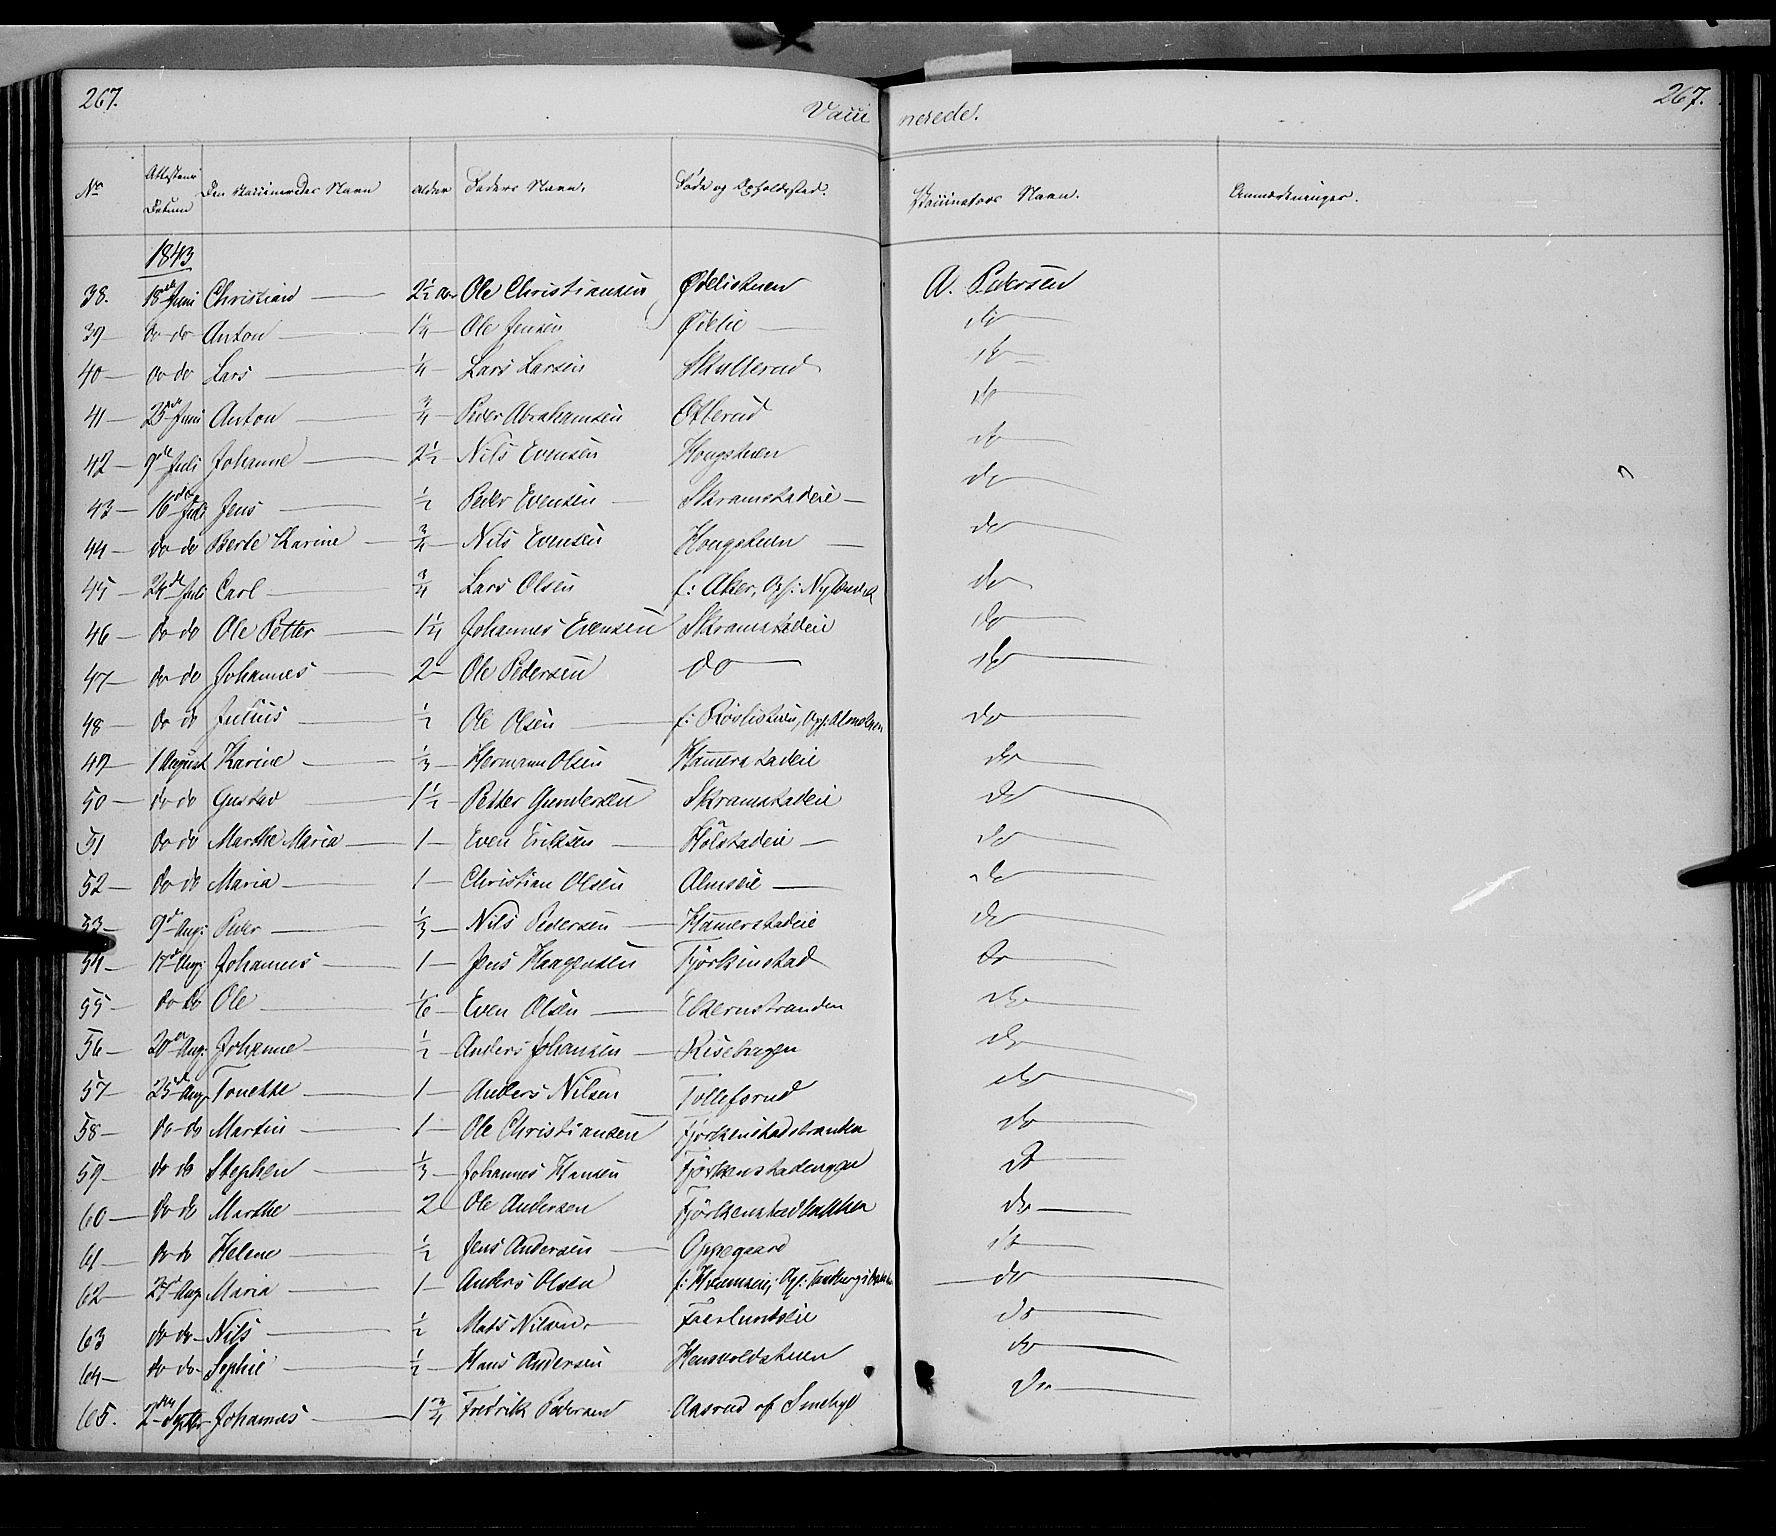 267. Vaccinerede. 267.
No Attestens Datum Den Vaccineredes Navn Alder Faders Navn. Føde og Opholdsted. Vaccinators Navn. Anmærkninger.
1843
38. 18de Juni Christian 2½ Aar Ole Christiansen Ødeliestuen A. Pedersen
39 do do Anton 1¼ Ole Jensen Ødelie do
40 do do Lars ¼ Lars Larsen Skullerud do
41 25de Juni Anton ¾ Peder Abrahamsen Otlerud do
42 9de Juli Johanne 2½ Nils Evensen Hougstuen do
43 16de Juli Jens ½ Peder Evensen Skramstadeie do
44 do do Berte Karine ¾ Nils Evensen Hougstuen do
45 24de Juli Carl ¾ Lars Olsen f: Aker, Oph: do
46 do do Ole Petter 1¼ Johannes Evensen Skramstadeie do
47 do do Johannes 2 Ole Pedersen do do
48 do do Julius ½ Ole Olsen f: do
49 1 August Karine ⅓ Hermann Olsen Hamerstadeie do
50 do do Gustav 1½ Petter Gundersen Skramstadeie do
51 do do Marthe Maria 1 Even Eriksen Holstadeie do
52 do do Maria 1 Christian Olsen Almseie do
53 9d Aug: Peder ⅓ Nils Pedersen Hamerstadeie do
54 17d Aug: Johannes 1 Jens Haagensen Tjørkinstad do
55 do do Ole ⅙ Even Olsen Elternstranden do
56 20de Aug: Johanne ½ Anders Johansen Risehagen do
57 25de Aug: Tonette 1 Anders Nilsen Tollefsrud do
58 do do Martin 1 Ole Christiansen Tjørkenstadbranten do
59 do do Stephen ⅓ Johannes Hansen Tjørkenstadengen do
60 do do Marthe 2 Ole Andersen Tjørkenstadbakken do
61 do do Helene ½ Jens Andersen Oppegaard do
62 27d Aug Maria 1 Anders Olsen f: Oph: do
63 do do Nils ½ Mads Nilsen Faerlundeie do
64 do do Sophie ½ Hans Andersen Hensvoldstuen do
65. 2den Septbr Johannes 1¾ Fredrik Pedersen Aasrud af Smebyl do